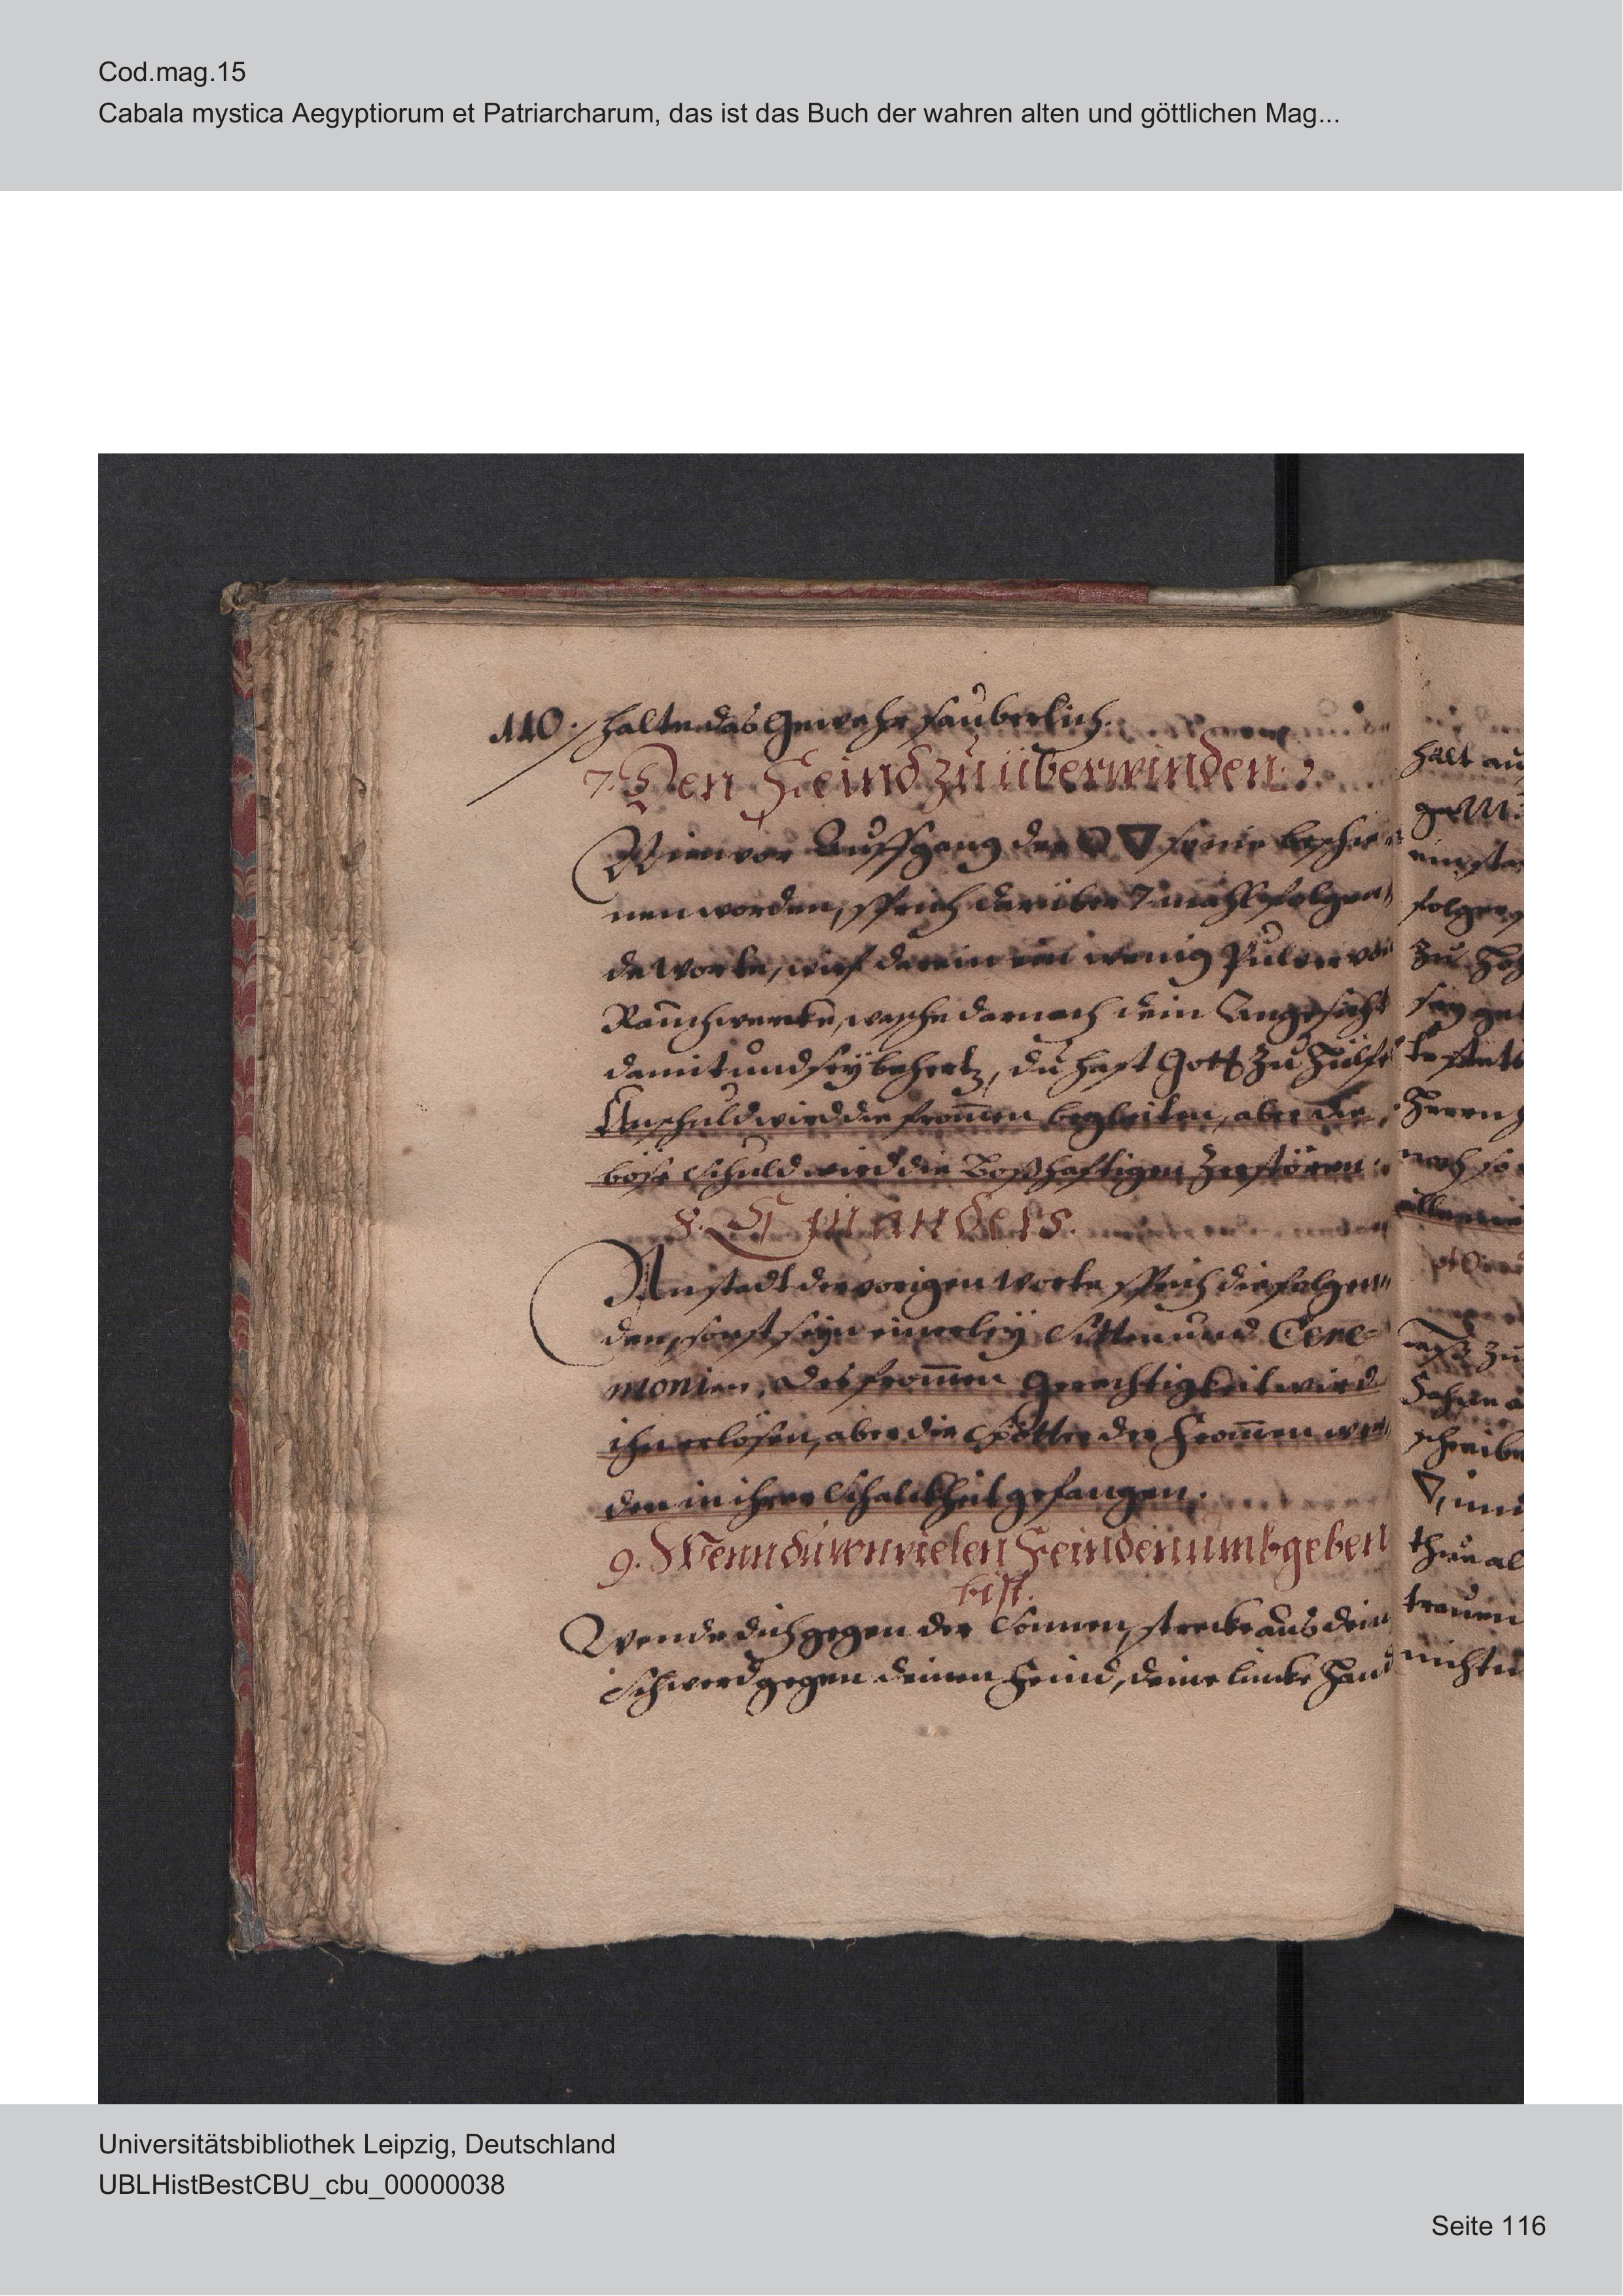 Cod.mag.15
Cabala mystica Aegyptiorum et Patriarcharum, das ist das Buch der wahren alten und göttlichen Mag...
110. halte das Gewehr sauberlich.
7. Den Feind zu überwinden.
Nim vor Auffgang der ☉ 🜄 so nie beschie-
nen worden, sprich darüber 7 mahl folgen-
de Worte, wirf darein ein wenig Pulver von
Rauchwercke, wasche darnach dein Angesicht
damit und sey behertz, du hast Gott zu Hülffe
Unschuld wird die from̅en begleiten, aber die
böse Schuld wird die Boßhafftigen zerstören
8. Ein anders.
Anstadt der vorigen Worte sprich die folgen-
den, sonst seyn einerley Sitten und Cere-
monien. Des from̅en Gerechtigkeit wird
ihn erlösen, aber die Spötter der From̅en wer-
den in ihrer Schalckheit gefangen.
9. Wenn du von vielen Feinden umbgeben
bist.
Wende dich gegen der Sonnen, strecke aus dein
Schwerd gegen deinen Feind, deine lincke Hand
halt au
folgen
zu
sey ge
Herrn
noch so
zu
schreibe
🜄, und
thue al
trauen
nichts
Universitätsbibliothek Leipzig, Deutschland
UBLHistBestCBU_cbu_00000038
Seite 116